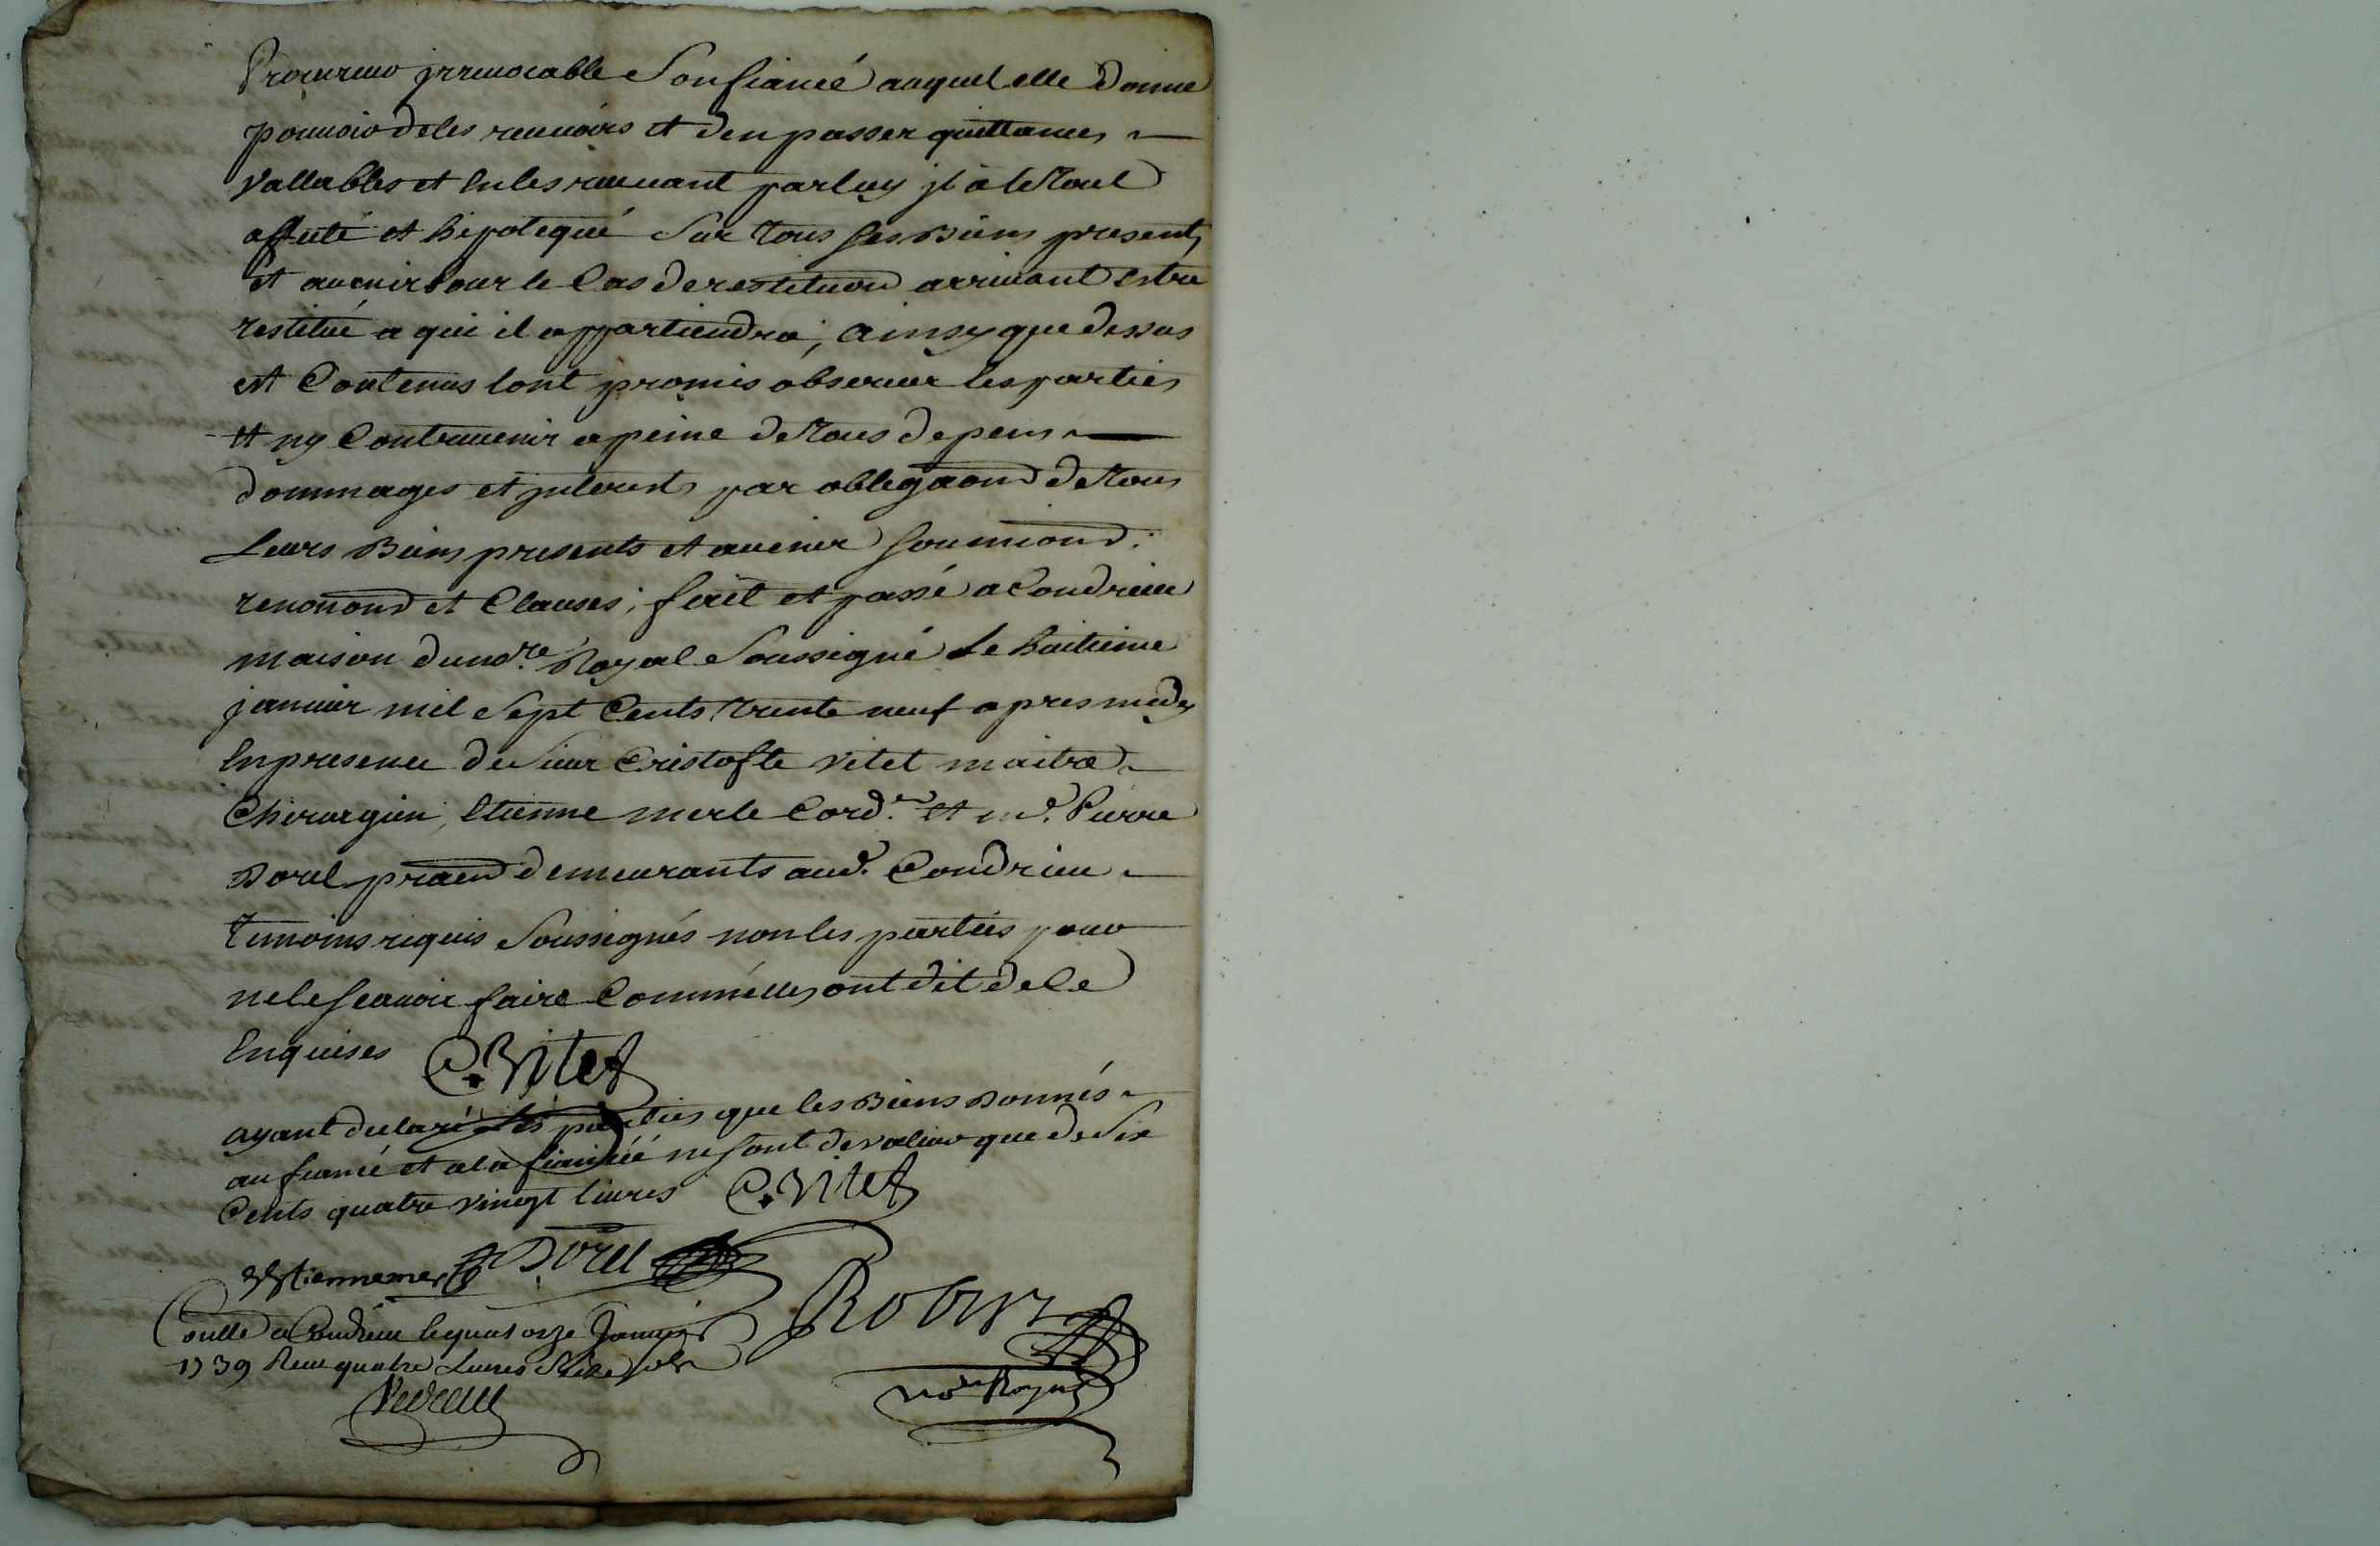 Procureur jrreuocable son fiancé auquel elle donne
pouuoir de les receuoirs et den passer quittances
vallables et en les receuant par luy jl a le tout
affecté et hipotequé sur tous ses biens presents
et auenir pour le cas de restitution arriuant estre
restitué a qui il appartiendra, ainsy que dessus
est contenus lont promis obseruer les parties
et ny contreuenir a peine de tous depens
dommages et jnterests par obligaond de tous
leurs biens presents et auenir soumiond.
renonond et clauses; fait et passé a Condrieu
maison du no.re Royal soussigné le huitieme
januier mil sept cents trente neuf apres midy
en presence de sieur Cristofle vitet maitre
chirurgien, etienne merle cord.er et m.e Pierre
Dorel praend demeurants aud. Condrieu
temoins requis soussignés non les parties pour
ne le scauoir faire comme elles ont dit de ce
enquises C. Vitet
ayant declaré les parties que les biens donnés
au fiancé et a la fiancée ne sont de valeur que de six
cents quatre vingt liures C. Vitet
estienne merle Dorel
Robin
Coullé a Condrieu le quatorze Januier
1739 Receu quatre Liures seize sols
no.re Royal